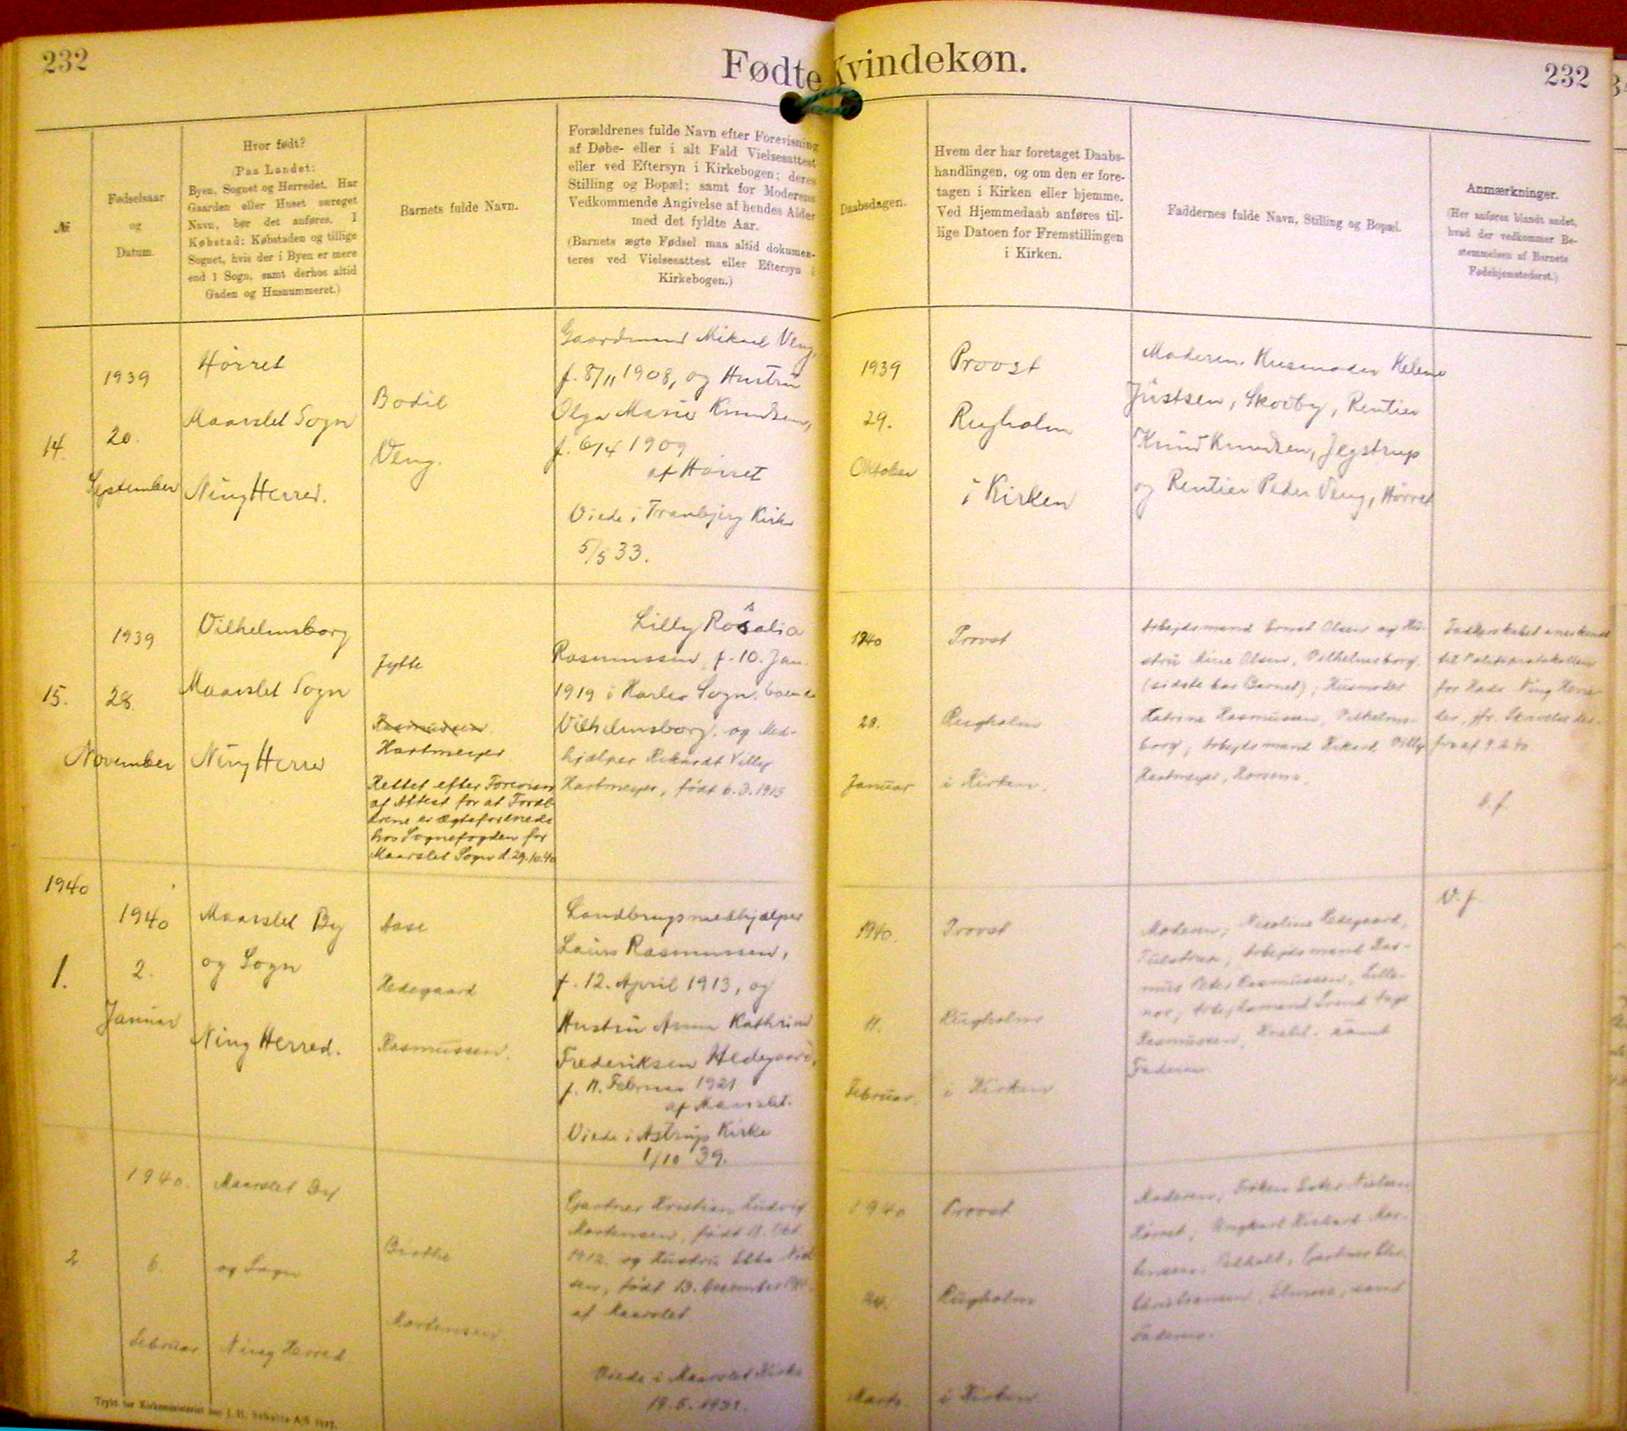 232
Fødte Kvindekøn.
232
№
Fødselsaar
og
Datum.
Hvor født?
(Paa Landet:
Byen, Sognet og Herredet. Har
Gaarden eller Huset særeget
Navn, bør det anføres. I
Købstad: Købstaden og tillige
Sognet, hvis der i Byen er mere
end 1 Sogn, samt derhos altid
Gaden og Husnummeret.)
Barnets fulde Navn.
Forældrenes fulde Navn efter Forevisning
af Døbe- eller i alt Fald Vielsesattest
eller ved Eftersyn i Kirkebogen; deres
Stilling og Bopæl; samt for Moderens
Vedkommende Angivelse af hendes Alder
med det fyldte Aar.
(Barnets ægte Fødsel maa altid dokumen-
teres ved Vielsesattest eller Eftersyn i
Kirkebogen.)
Daabsdagen.
Hvem der har foretaget Daabs-
handlingen, og om den er fore-
tagen i Kirken eller hjemme.
Ved Hjemmedaab anføres til-
lige Datoen for Fremstillingen
i Kirken.
Faddernes fulde Navn, Stilling og Bopæl.
Anmærkninger.
(Her anføres blandt andet,
hvad der vedkommer Be-
stemmelsen af Barnets
Fødehjemstedsret.)
14.
1939
20.
September
Hørret
Maarslet Sogn
Ning Herred.
Bodil
Veng.
Gaardmand Mikael Veng,
f. 8/11 1908, og Hustru
Olga Marie Knudsen,
f. 6/4 1909
af Hørret
Viede i Tranbjerg Kirke
5/5 33.
1939
29.
Oktober
Provst
Rugholm
i Kirken
Moderen, Husmoder Helene
Justsen, Skovby, Rentier
Knud Knudsen, Jegstrup
og Rentier Peder Veng, Hørret
15.
1939
28.
November
Vilhelmsborg
Maarslet Sogn
Ning Herred
Jytte
Rasmussen
Hartmeyer
Rettet efter Forevisn
af Attest for at Foræl-
drene er ægteforenede
hos Sognefogden for
Maarslet Sogn d. 29.10.40
Lilly Rosalia
Rasmussen, f. 10. Jan.
1919 i Harlev Sogn, boende
Vilhelmsborg, og Med-
hjælper Rikardt Villy
Hartmeyer, født 6.3.1915
1940
28.
Januar
Provst
Rugholm
i Kirken.
Arbejdsmand Ernst Olsen og Hu-
stru Mine Olsen, Vilhelmsborg.
(sidste bar Barnet), Husmoder
Katrine Rasmussen, Vilhelms-
borg, Arbejdsmand Rikard Villy
Hartmeyer, Horsens.
Faderskabet anerkendt
til Politiprotokollen
for Hads Ning Herre-
der, jfr. Skrivelse der-
fra af 9.2.40
V. f.
1940
1.
1940
2.
Januar
Maarslet By
og Sogn
Ning Herred.
Aase
Hedegaard
Rasmussen.
Landbrugsmedhjælper
Laurs Rasmussen,
f. 12. April 1913, og
Hustru Anna Kathrine
Frederiksen Hedegaard,
f. 11. Februar 1921
af Maarslet.
Viede i Astrup Kirke
1/10 39.
1940.
11.
Februar.
Provst
Rugholm
i Kirken
Moderen, Nicoline Hedegaard,
Arbejdsmand Ras-
mus Peter Rasmussen,
Arbejdsmand Svend Aage
Rasmussen, samt
Faderen.
V. f.
2
1940.
6.
Februar
Maarslet By
og Sogn
Ning Herred
Birthe
Mortensen.
Gartner Kristian Ludvig
Mortensen, født 11. Okt.
1912. og Hustru Ebba Niel-
sen, født 13. December
af Maarslet
Viede i Maarslet Kirke
19.5.1931.
1940
24.
Marts
Provst
Rugholm
i Kirken
Moderen, Frøken Nielsen
Hørret, Ungkarl Rikard Mor-
tensen, Gartner Chr.
Christiansen, samt
Faderen.
Trykt for Kirkeministeriet hos J. H. Schultz A/S 1927.